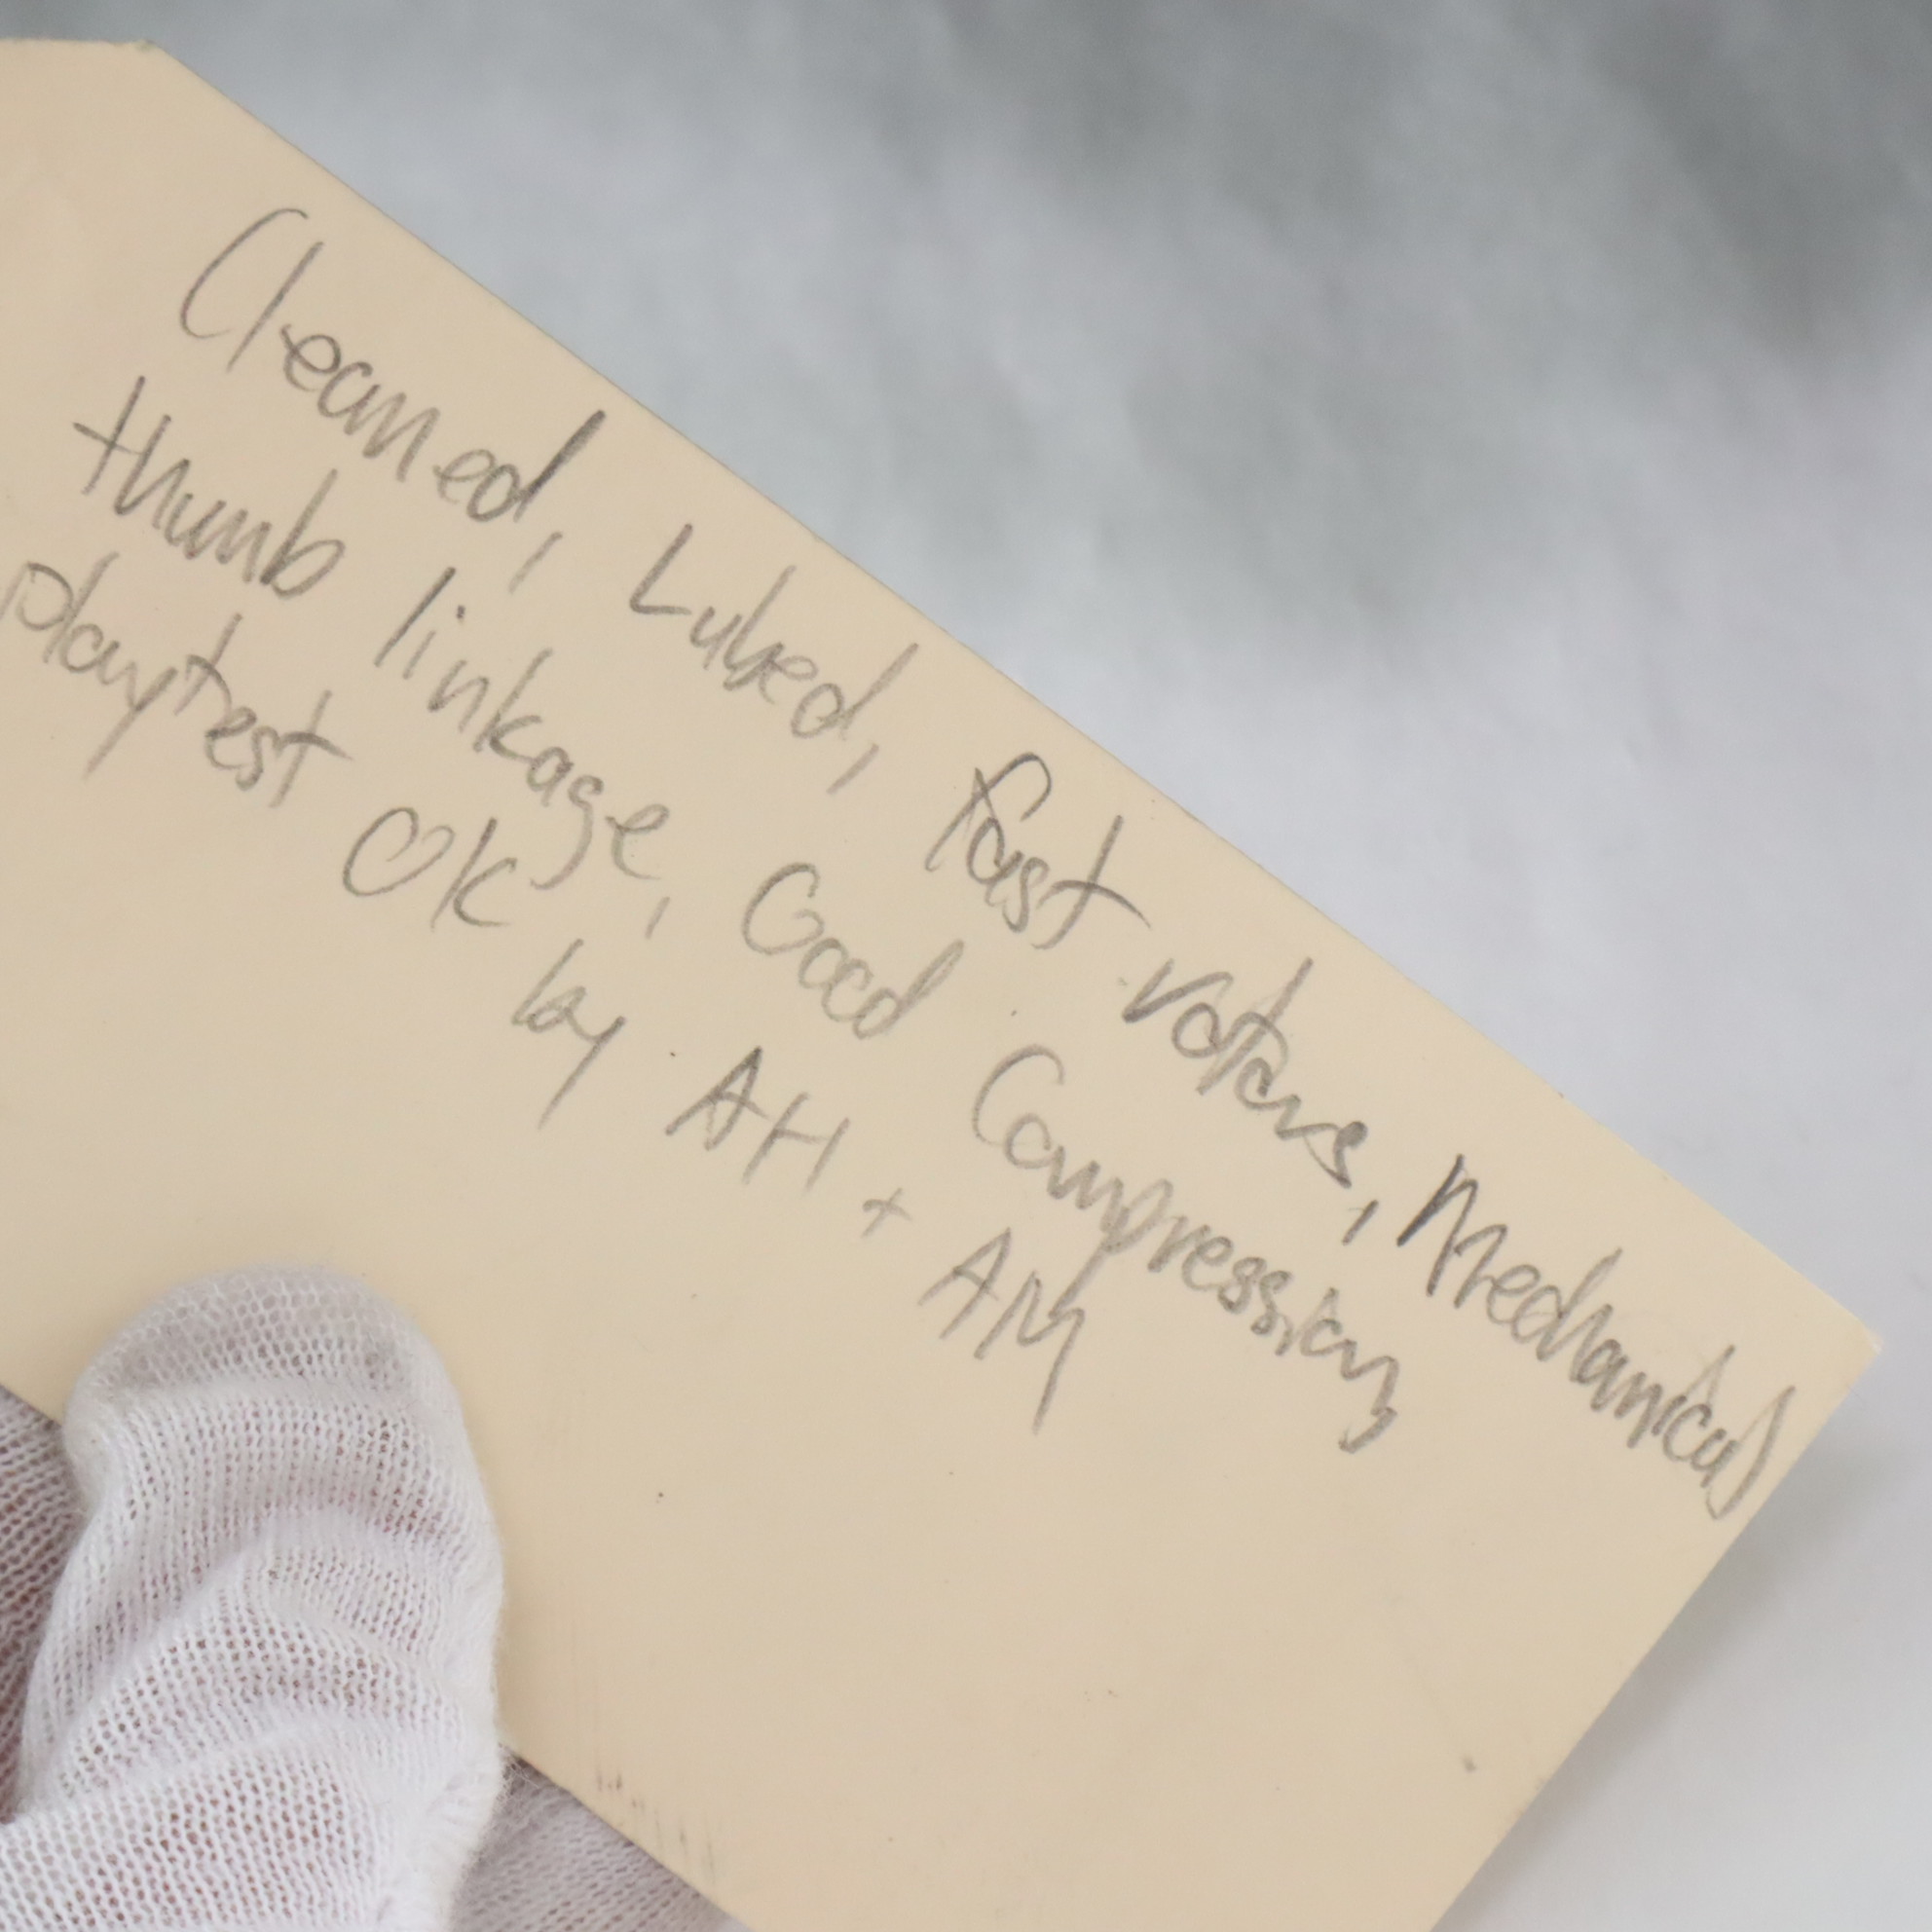 Cleaned, Lubed, fast rotors, Mechanical
thumb linkage, Good Compression,
playtest OK by AH + AM